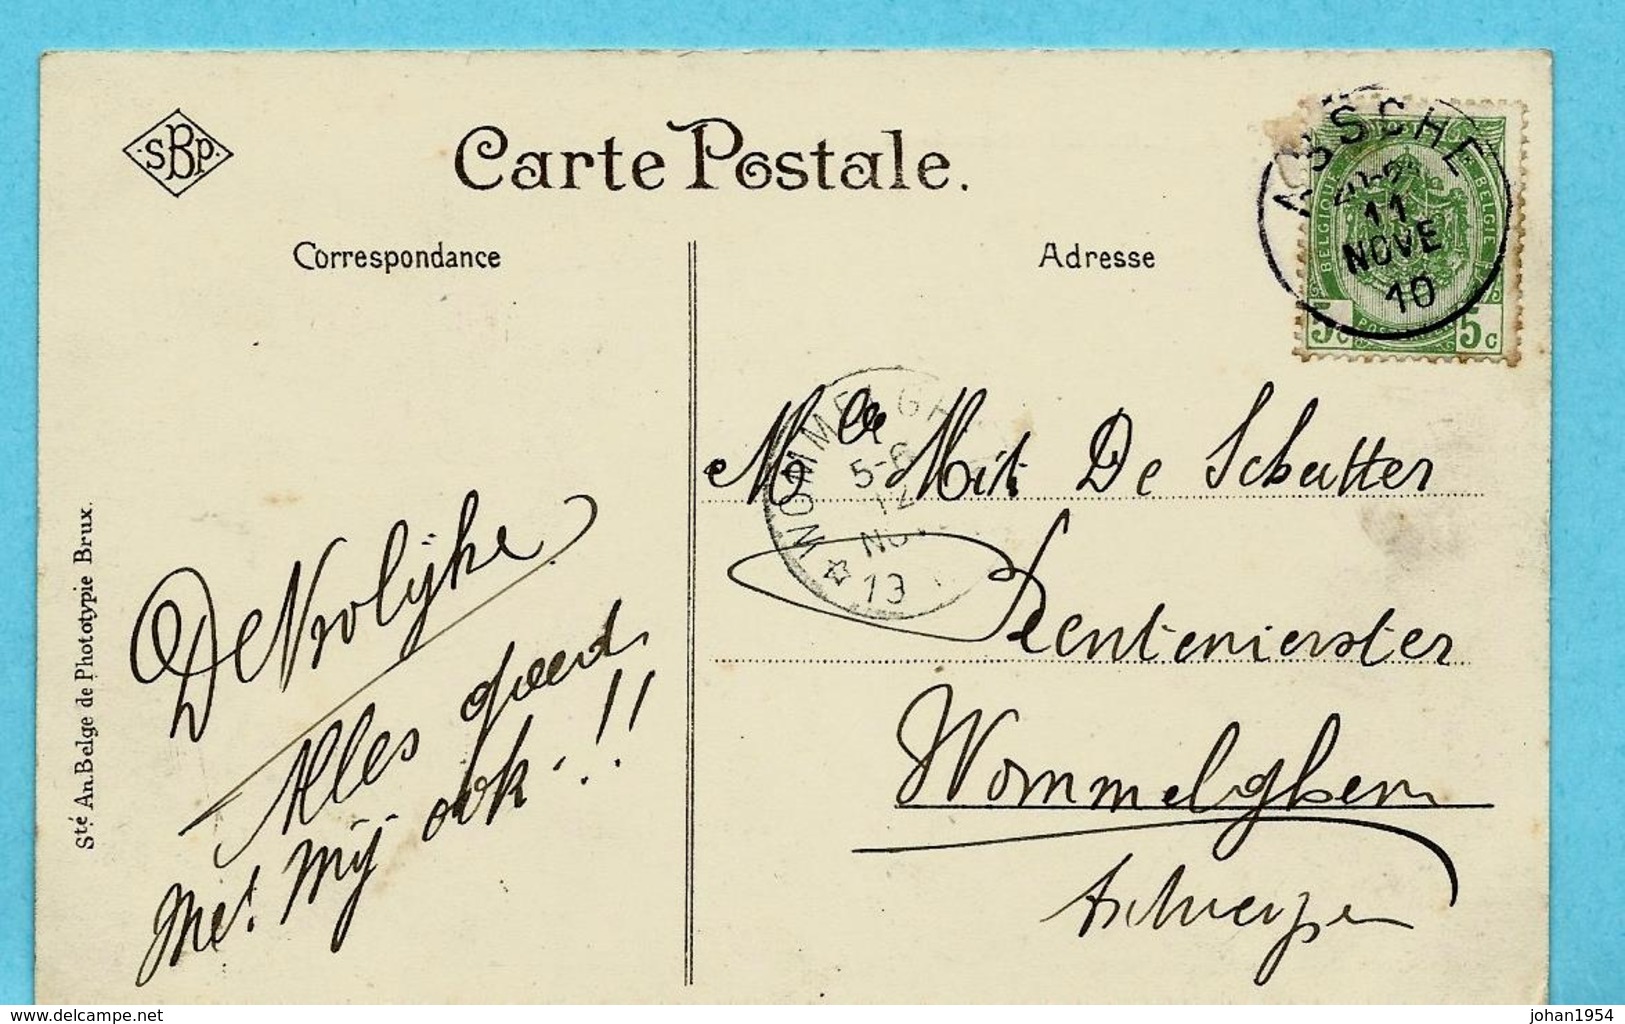 SBP
Carte Postale.
Correspondance
Adresse
ASSCHE
11
NOVE
10
BELGIQUE
BELGIE
5c
5c
WOMMELGH
5-6
12
NO
13
Mlle Mit. De Schutter
Rentenierster
Wommelghem
Antwerpen
De Vrolijke
Alles goed
Met mij ook!!
Sté An. Belge de Phototypie Brux.
www.delcampe.net
johan1954